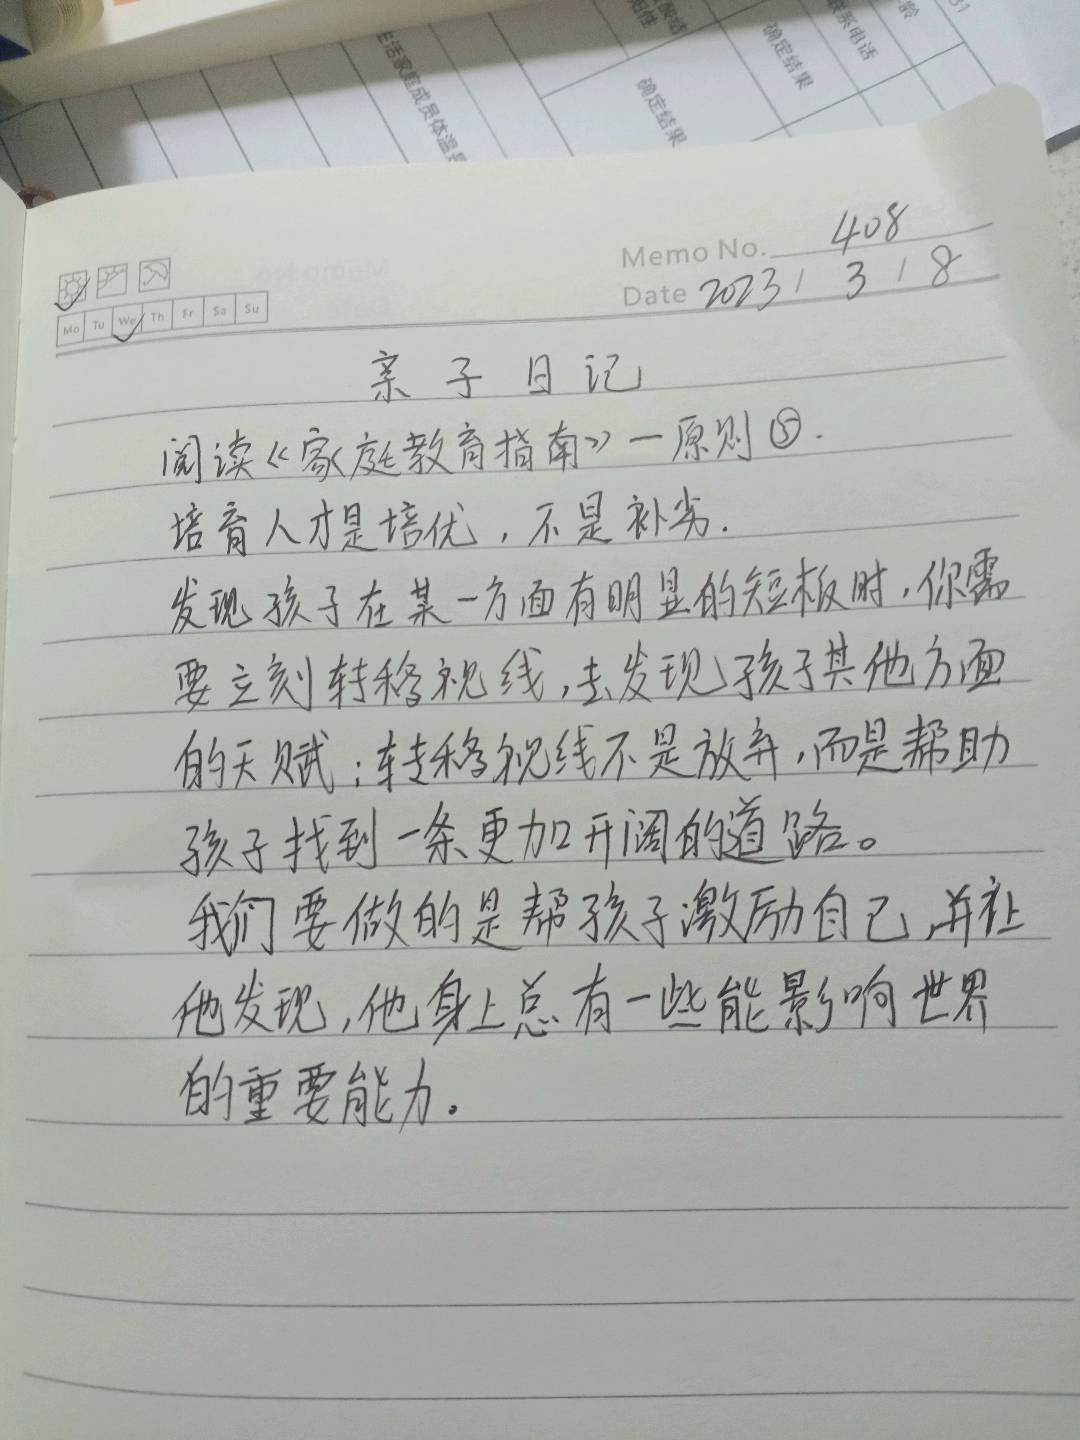 生活家庭成员体温
确定结果
确定结果
联系电话
Memo No. 408
Date 2023 / 3 / 8
Mo Tu We Th Fr Sa Su
亲子日记
阅读《家庭教育指南》一原则⑤.
培育人才是培优，不是补劣.
发现孩子在某一方面有明显的短板时，你需
要立刻转移视线，去发现孩子其他方面
的天赋；转移视线不是放弃，而是帮助
孩子找到一条更加开阔的道路。
我们要做的是帮孩子激励自己，并让
他发现，他身上总有一些能影响世界
的重要能力。